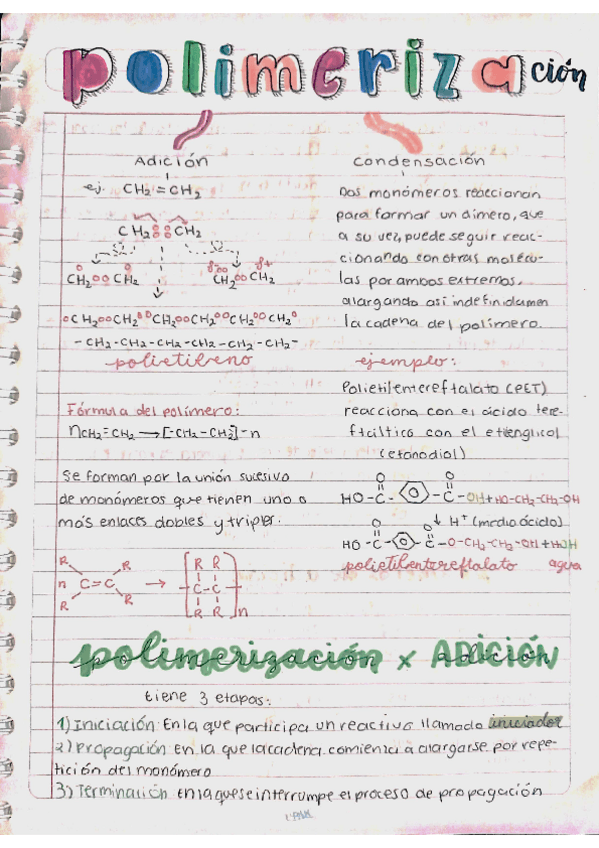 polimerización
Adición
ej. CH₂=CH₂
CH₂ CH₂
CH₂ CH₂
CH₂ CH₂
CH₂ CH₂ CH₂ CH₂ CH₂ CH₂
-CH₂-CH₂-CH₂-CH₂-CH₂-CH₂-
polietileno
Fórmula del polímero:
nCH₂=CH₂ → [-CH₂-CH₂]-n
Se forman por la unión sucesiva
de monómeros que tienen uno o
más enlaces dobles y triples.
R R
n C=C →
R R
R R
-C-C-
R R n
Condensación
Dos monómeros reaccionan
para formar un dímero, que
a su vez, puede seguir reac-
cionando con otras molécu-
las por ambos extremos,
alargando así indefinidamen
la cadena del polímero.
ejemplo:
Polietilentereftalato (PET)
reacciona con el ácido tere-
ftcíltico con el etilenglicol
(etanodiol)
O O
HO-C- -C-OH + HO-CH₂-CH₂-OH
O O ↓ H⁺ (medio ácido)
HO-C- -C-O-CH₂-CH₂-OH + HOH
polietilentereftalato agua
polimerización x ADICIÓN
tiene 3 etapas:
1) Iniciación: En la que participa un reactivo llamado iniciador
2) Propagación en la que la cadena comienza a alargarse por repe-
tición del monómero
3) Terminación en la que se interrumpe el proceso de propagación